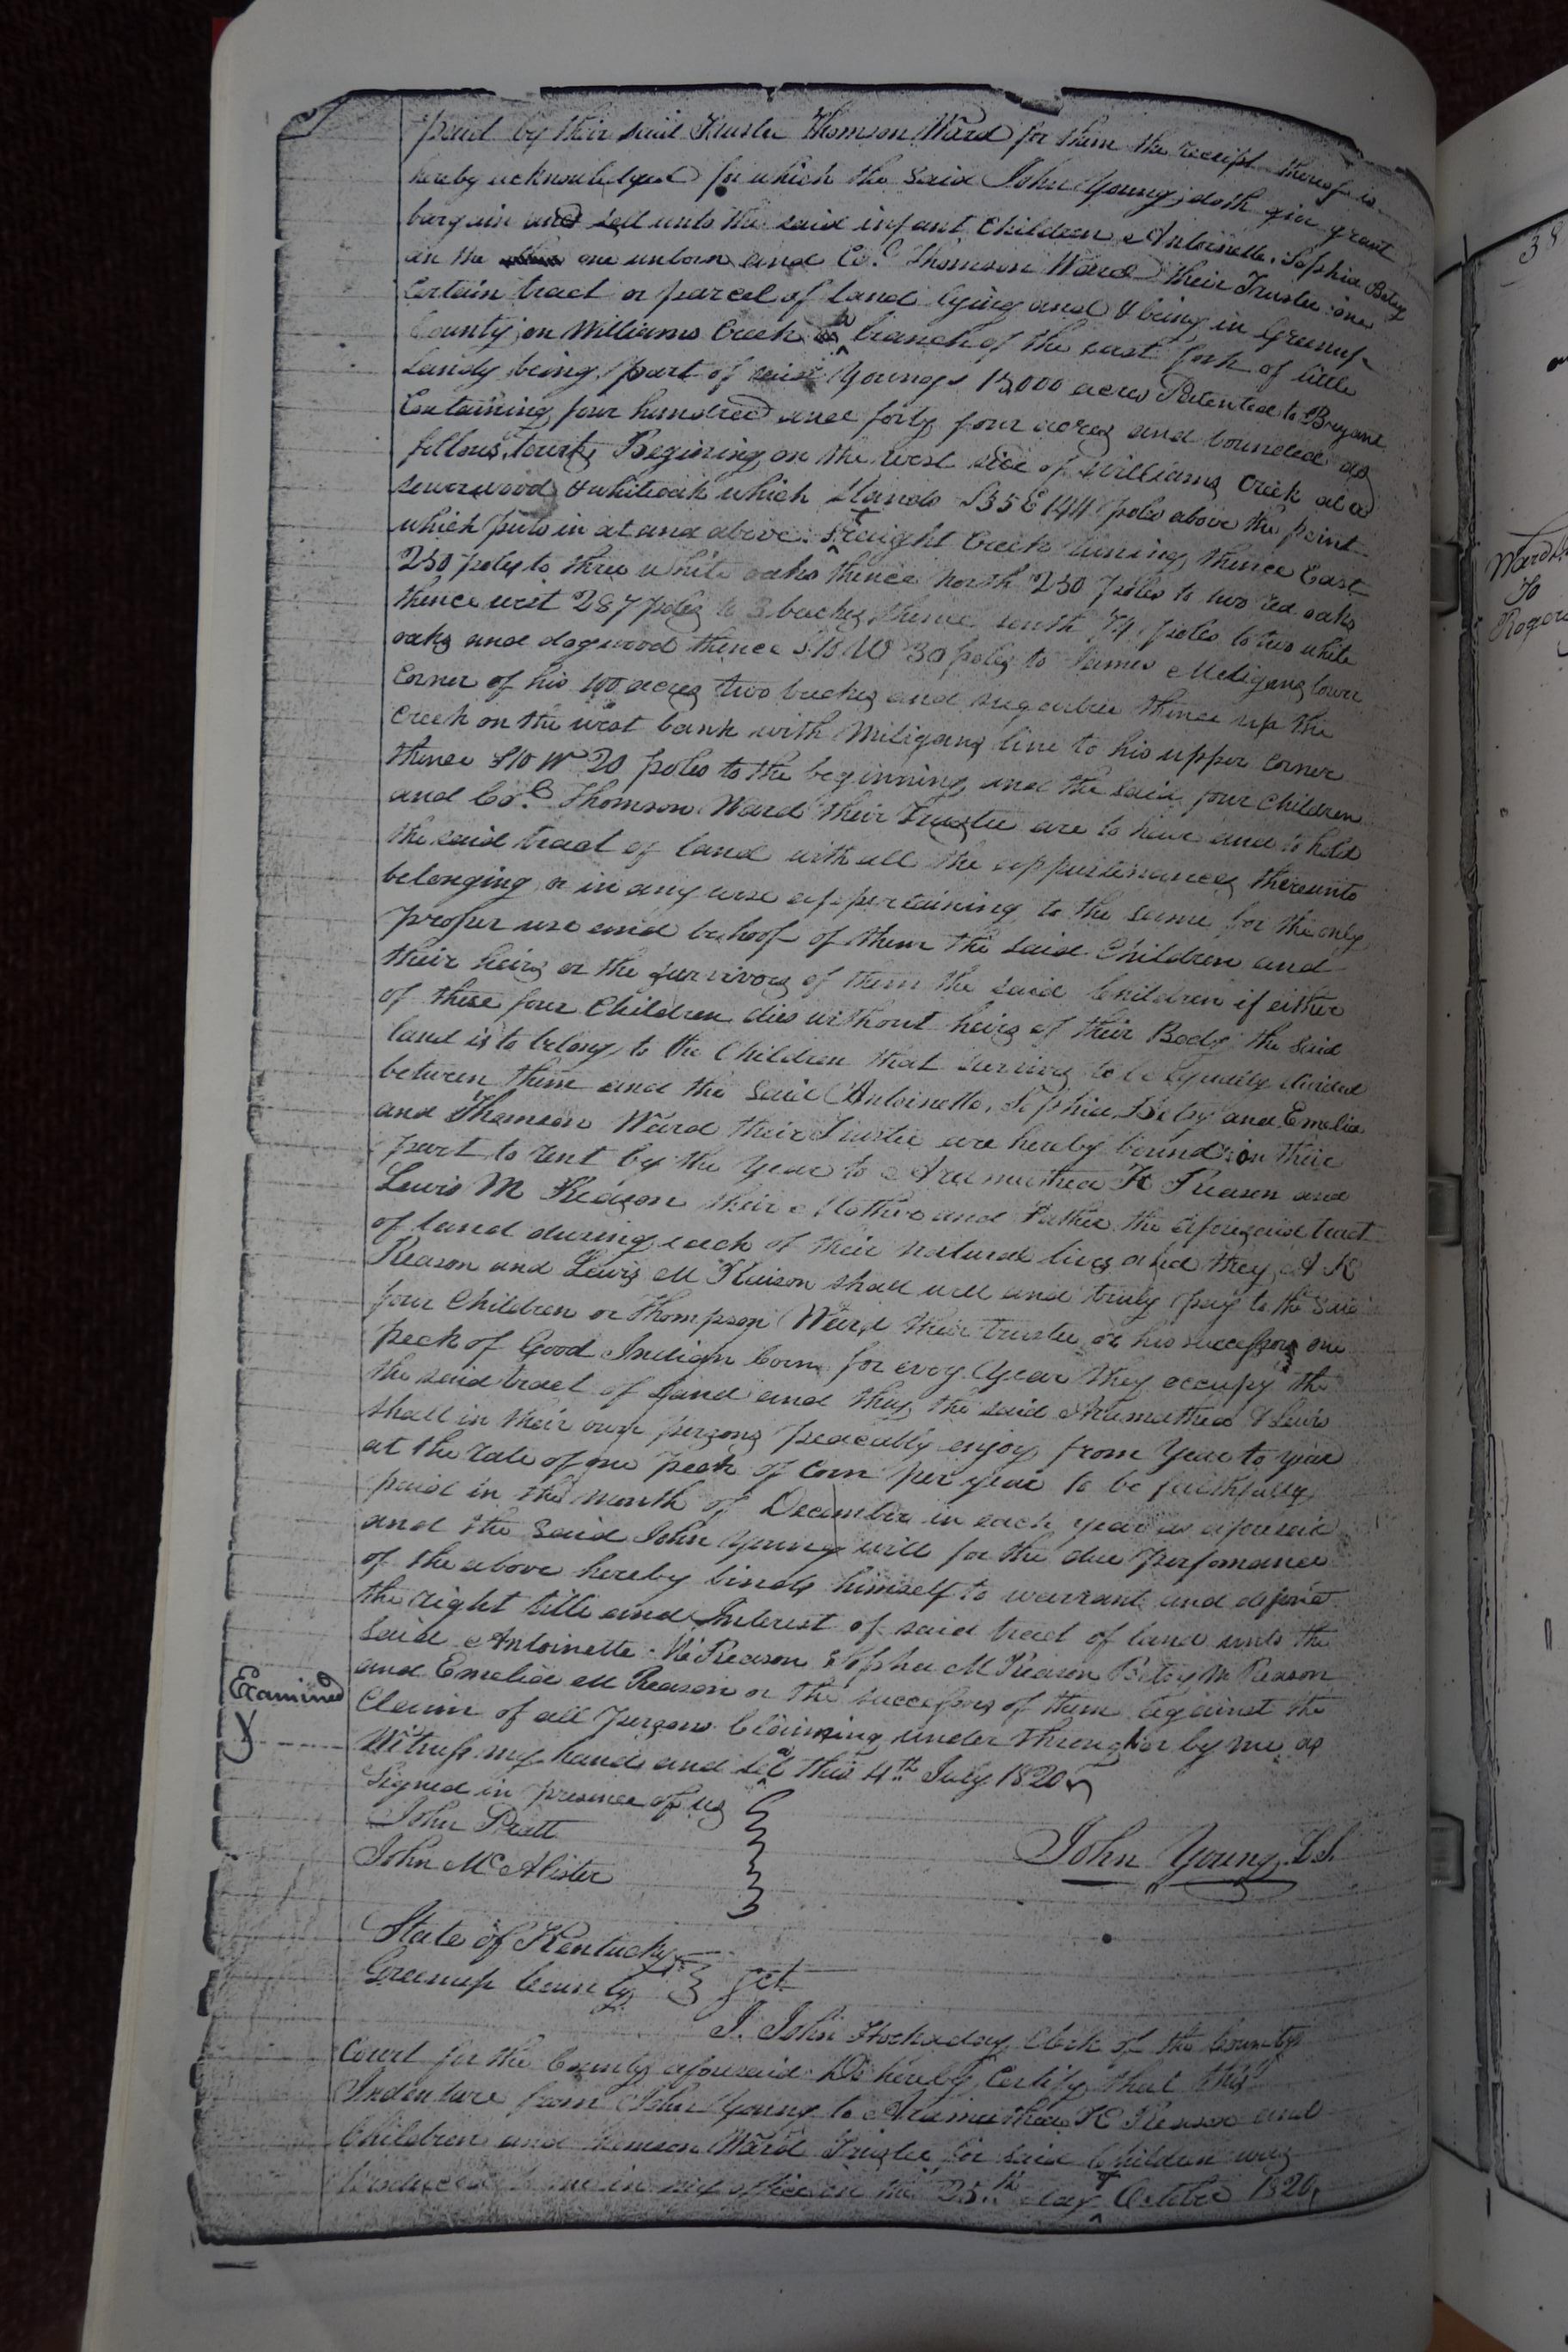 paid by their said Trustee Thomson Ward for them the receipt thereof is
hereby acknowledged for which the said John Young doth give grant
bargain and sell unto the said infant Children Antoinette, Sophia Betsy
an the one unborn and Col. Thomson Ward their Trustee one
Certain tract or parcel of land lying and & being in Greenup
County on Williams Creek a branch of the east fork of little
Sandy being part of Youngs 15,000 acres Patented to Bryant
Containing four hundred and forty four acres and bounded as
follows, Begining on the west side of Williams Creek at a
sowerwood & whiteoak which stands S35E 144 poles above the point
which puts in at and above Straight Creek runing thence East
250 poles to three white oaks thence north 250 poles to two red oaks
thence west 287 poles to 3 buckes thence south 74 poles to two white
oaks and dogwood thence W 30 poles to James Miligans lower
Corner of his 100 acres two buckes and sugartree thence up the
Creek on the west bank with Miligans line to his upper Corner
thence S10 W 20 poles to the beginning and the said four Children
and Col. Thomson Ward their Trustee are to have and to hold
the said tract of land with all the appurtenances thereunto
belonging or in any wise appertaining to the same for the only
proper use and behoof of them the said Children and
their heirs or the survivors of them the said Children if either
of these four Children dies without heirs of their Body the said
land is to belong to the Children that survives to be Equally divided
between them and the said Antoinette, Sophia, Betsy and Emelia
and Thomson Ward their Trustee are hereby bound on their
part to rent by the year to Aramathea K Reason and
Lewis M Reason their Mother and Father the aforesaid tract
of land during each of their natural lives and they A K
Reason and Lewis M Reason shall well and truly pay to the said
four Children or Thompson Ward their trustee or his successors one
peck of Good Indian Corn for evry Year they occupy the
the said tract of land and they the said Aramathea & Lewis
shall in their own persons peaceably enjoy from Year to year
at the rate of one peck of Corn per year to be faithfully
paid in the month of December in each year as aforesaid
and the said John Young will for the due perfomance
of the above hereby binds himself to warrant and defend
the right title and Interest of said tract of land unto the
said Antoinette Reason Sophia M Reason Betsy M Reason
and Emelia M Reason or the successors of them against the
Examined
Claim of all persons Claiming under through or by me as
Witness my hand and seal this 4th July 1820
Signed in presence of us
John Pratt
John McAlister
John Young L.S.
State of Kentucky
Greenup County } Sct
I. John Hockaday Clerk of the County
Court for the County aforesaid Do hereby Certify that this
Indenture from John Young to Aramathea K Reason and
Children and Thomson Ward Trustee for said Children was
produced to me in my office on the 25th day of October 1820,
38
Ward
To
Rogers